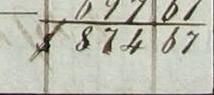 697 61
$ 874 67